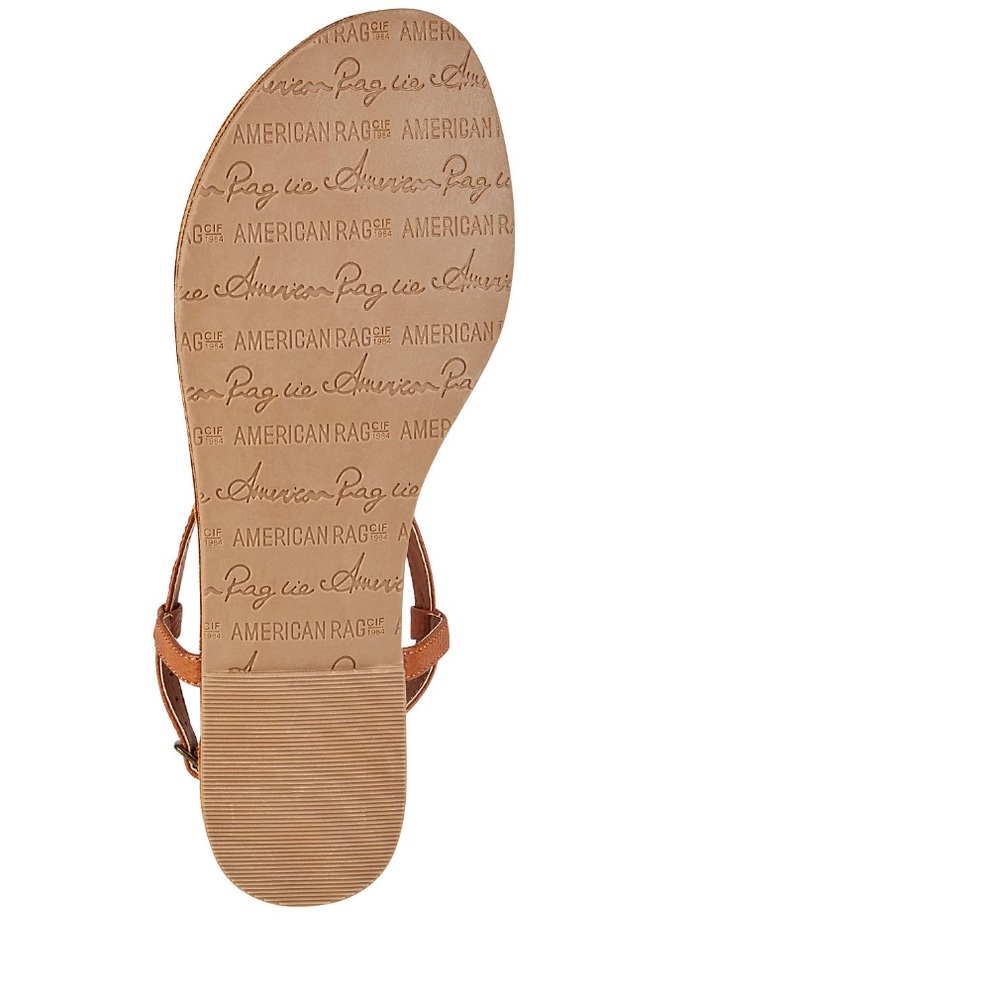 RAG CIF 1984 AMERI
American Rag cie Am
AMERICAN RAG CIE 1984 AMERICAN
Rag cie American Rag
AG CIE 1984 AMERICAN RAG CIE 1984 AMERICAN R
cie American Rag cie Ameri
AG CIE 1984 AMERICAN RAG CIE 1984 AMERICAN
Rag cie American Ra
G CIE 1984 AMERICAN RAG CIE 1984 AMER
American Rag cie
CIE 1984 AMERICAN RAG CIE 1984 A
Rag cie Americ
CIE 1984 AMERICAN RAG CIE 1984